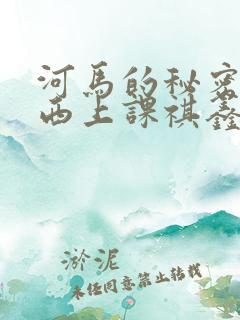 河馬的秘密
西上課祺鑫
淤泥
未经同意禁止转载